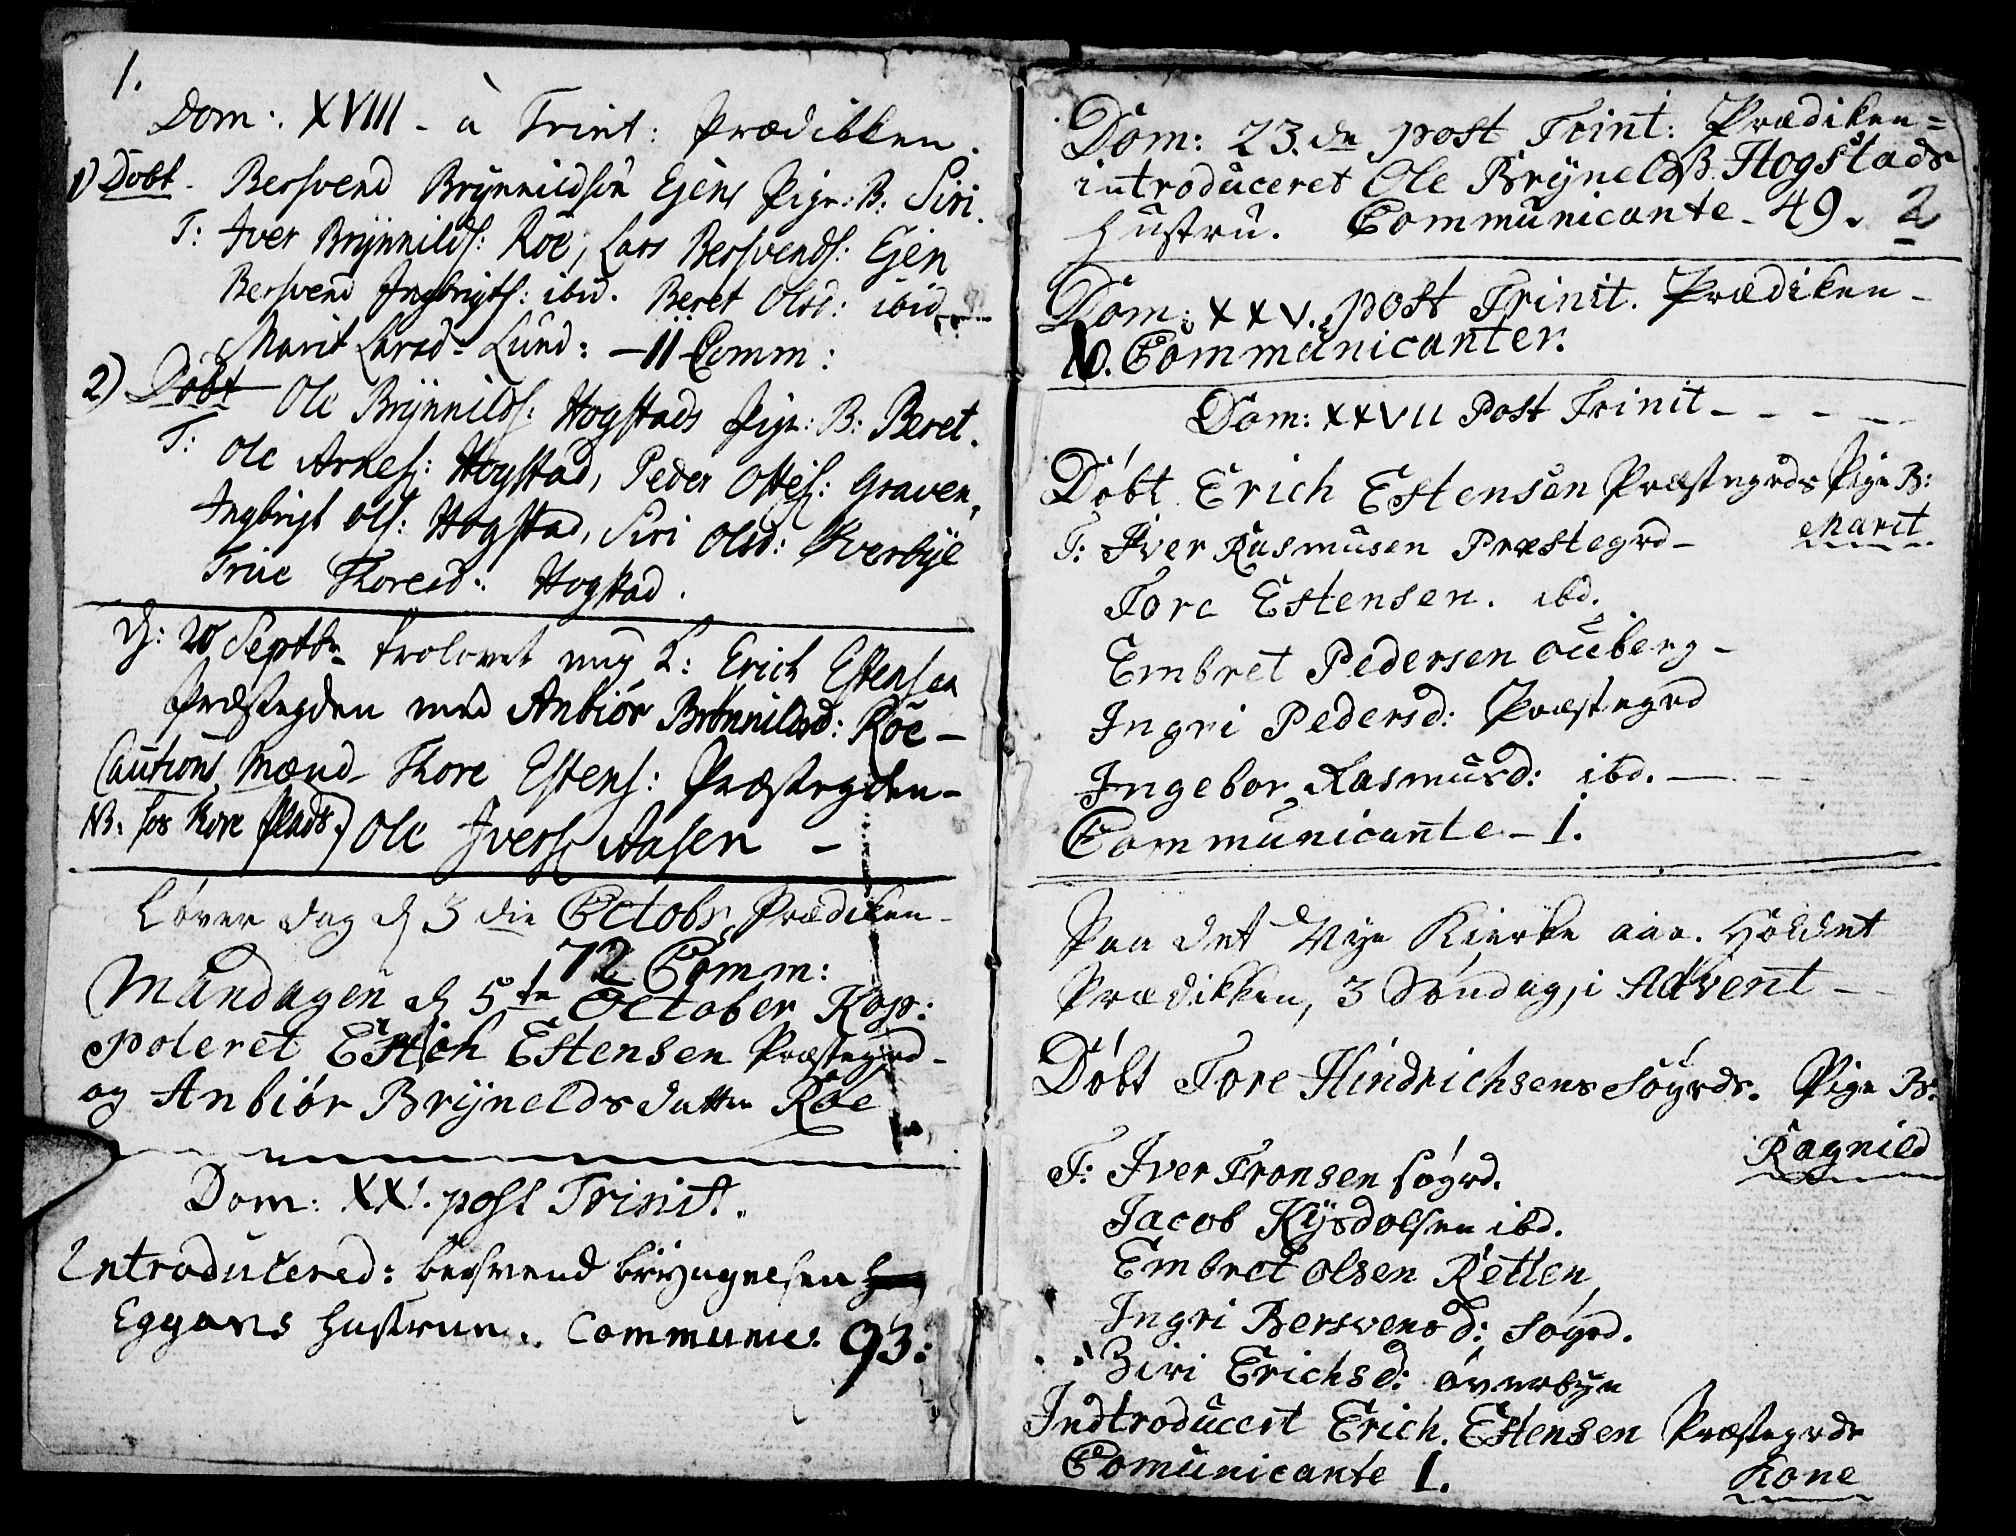 1.
Dom: XVIII - à Trint: Prædikken.
1) Døbt - Bersvend Brynnildsøn Ejens Pige: B: Siri.
T: Iver Brynnilds: Roe, Lars Bersvends: Ejen
Bersvend Ingbrigts: ibid. Beret Olsd: ibid
Marit Larsd - Lund: - 11 Comm:
2) Døbt Ole Brynnilds: Hogstads Pige: B: Beret.
T: Ole Arnes: Hogstad, Peder Ottes: Graven,
Ingbrigt Ols: Hogstad, Siri Olsd: Øverbye
Trine Thoresd: Hogstad.
d: 20 Septbr trolovet ung K: Erich Estensen
Præstegden med Anbiør Brønnildsd: Roe -
Cautions Mænd - Thore Estens: Præstegden -
NB: hos Thore Plads) Ole Ivers Aasen -
Løver dag d 3 die Octobr. Prædiken -
72 Comm:
Mandagen d 5te October Kop:
poleret Erich Estensen Præstegrd -
og Anbiør Brynelds datter Roe
Dom: XX. post Trinit.
Introducered: bersvend bryngnelsen
Eggans hustrue. Communic. 93:
Dom: 23.de post Trint: Prædiken =
introduceret Ole Bryneldß. Hogstads
hustru. Communicante - 49. 2
Dom: XXV. post Trinit. Prædiken -
10. Communicanter.
Dom: XXVII Post Trinit - - - -
Døbt Erich Estensen Præstegrds Pige B:
Marit
T: Iver Rasmusen Præstegrd -
Tore Estensen. ibd.
Embret Pedersen ouberg -
Ingri Pedersd: Præstegrd
Ingebor Rasmusd: ibd. -
Communicante - 1.
Paa det Nye Kierke aar. Holdet
Prædikken, 3 Søndag i Advent -
Døbt Tore Hindrichsens Søgrds. Pige B.
Ragnild
T: Iver Tronsen søgrd.
Jacob Rysdolsen ibd.
Embret Olsen Retten,
Ingri Bersvensd: søgrd.
Ziri Erichsd: øverbye
Indtroducert Erich. Estensen Præstegrds
Kone
Comunicante 1.